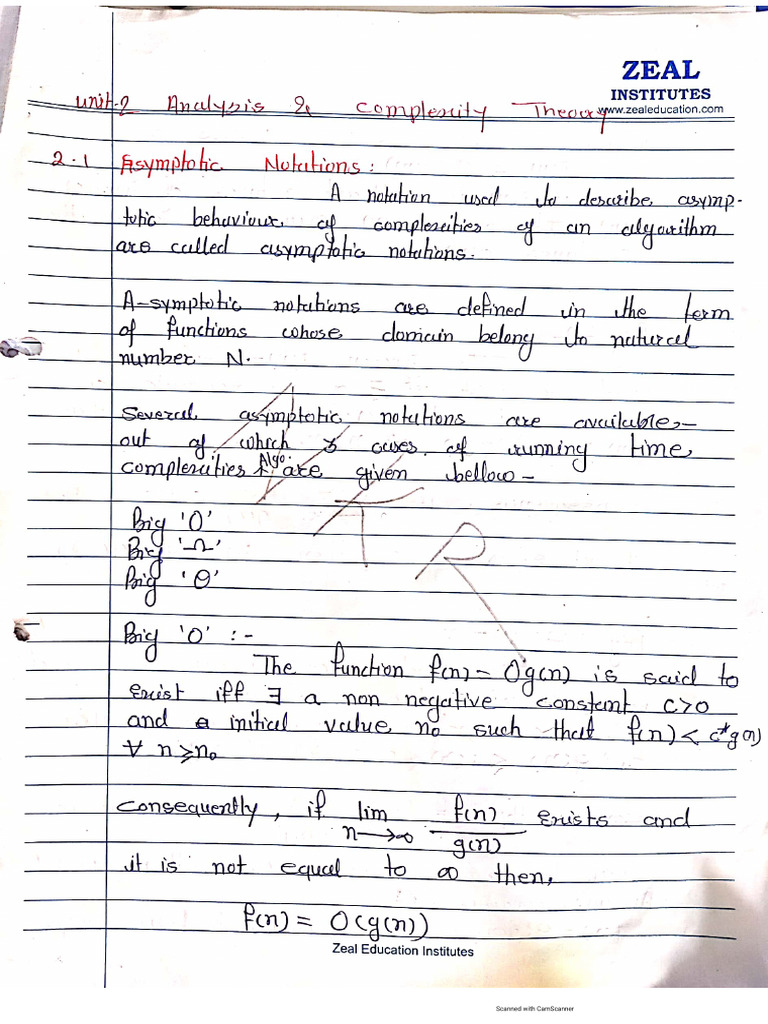 ZEAL
INSTITUTES
www.zealeducation.com
Unit-2 Analysis & Complexity Theory
2.1 Asymptotic Notations:
A notation used to describe asymp-
totic behaviour of complexities of an algorithm
are called asymptotic notations.
A-symptotic notations are defined in the term
of functions whose domain belong to natural
number N.
Several asymptotic notations are available,-
out of which 3 cases of running time,
Algo.
complexities are given bellow -
Big 'O'
Big 'Ω'
Big 'Θ'
TR
Big 'O' :-
The function f(n) - O'g(n) is said to
exist iff ∃ a non negative constant c>0
and a initial value n₀ such that f(n) < c*g(n)
∀ n≥n₀
Consequently, if lim n→∞ f(n)/g(n) exists and
it is not equal to ∞ then,
f(n) = O(g(n))
Zeal Education Institutes
Scanned with CamScanner